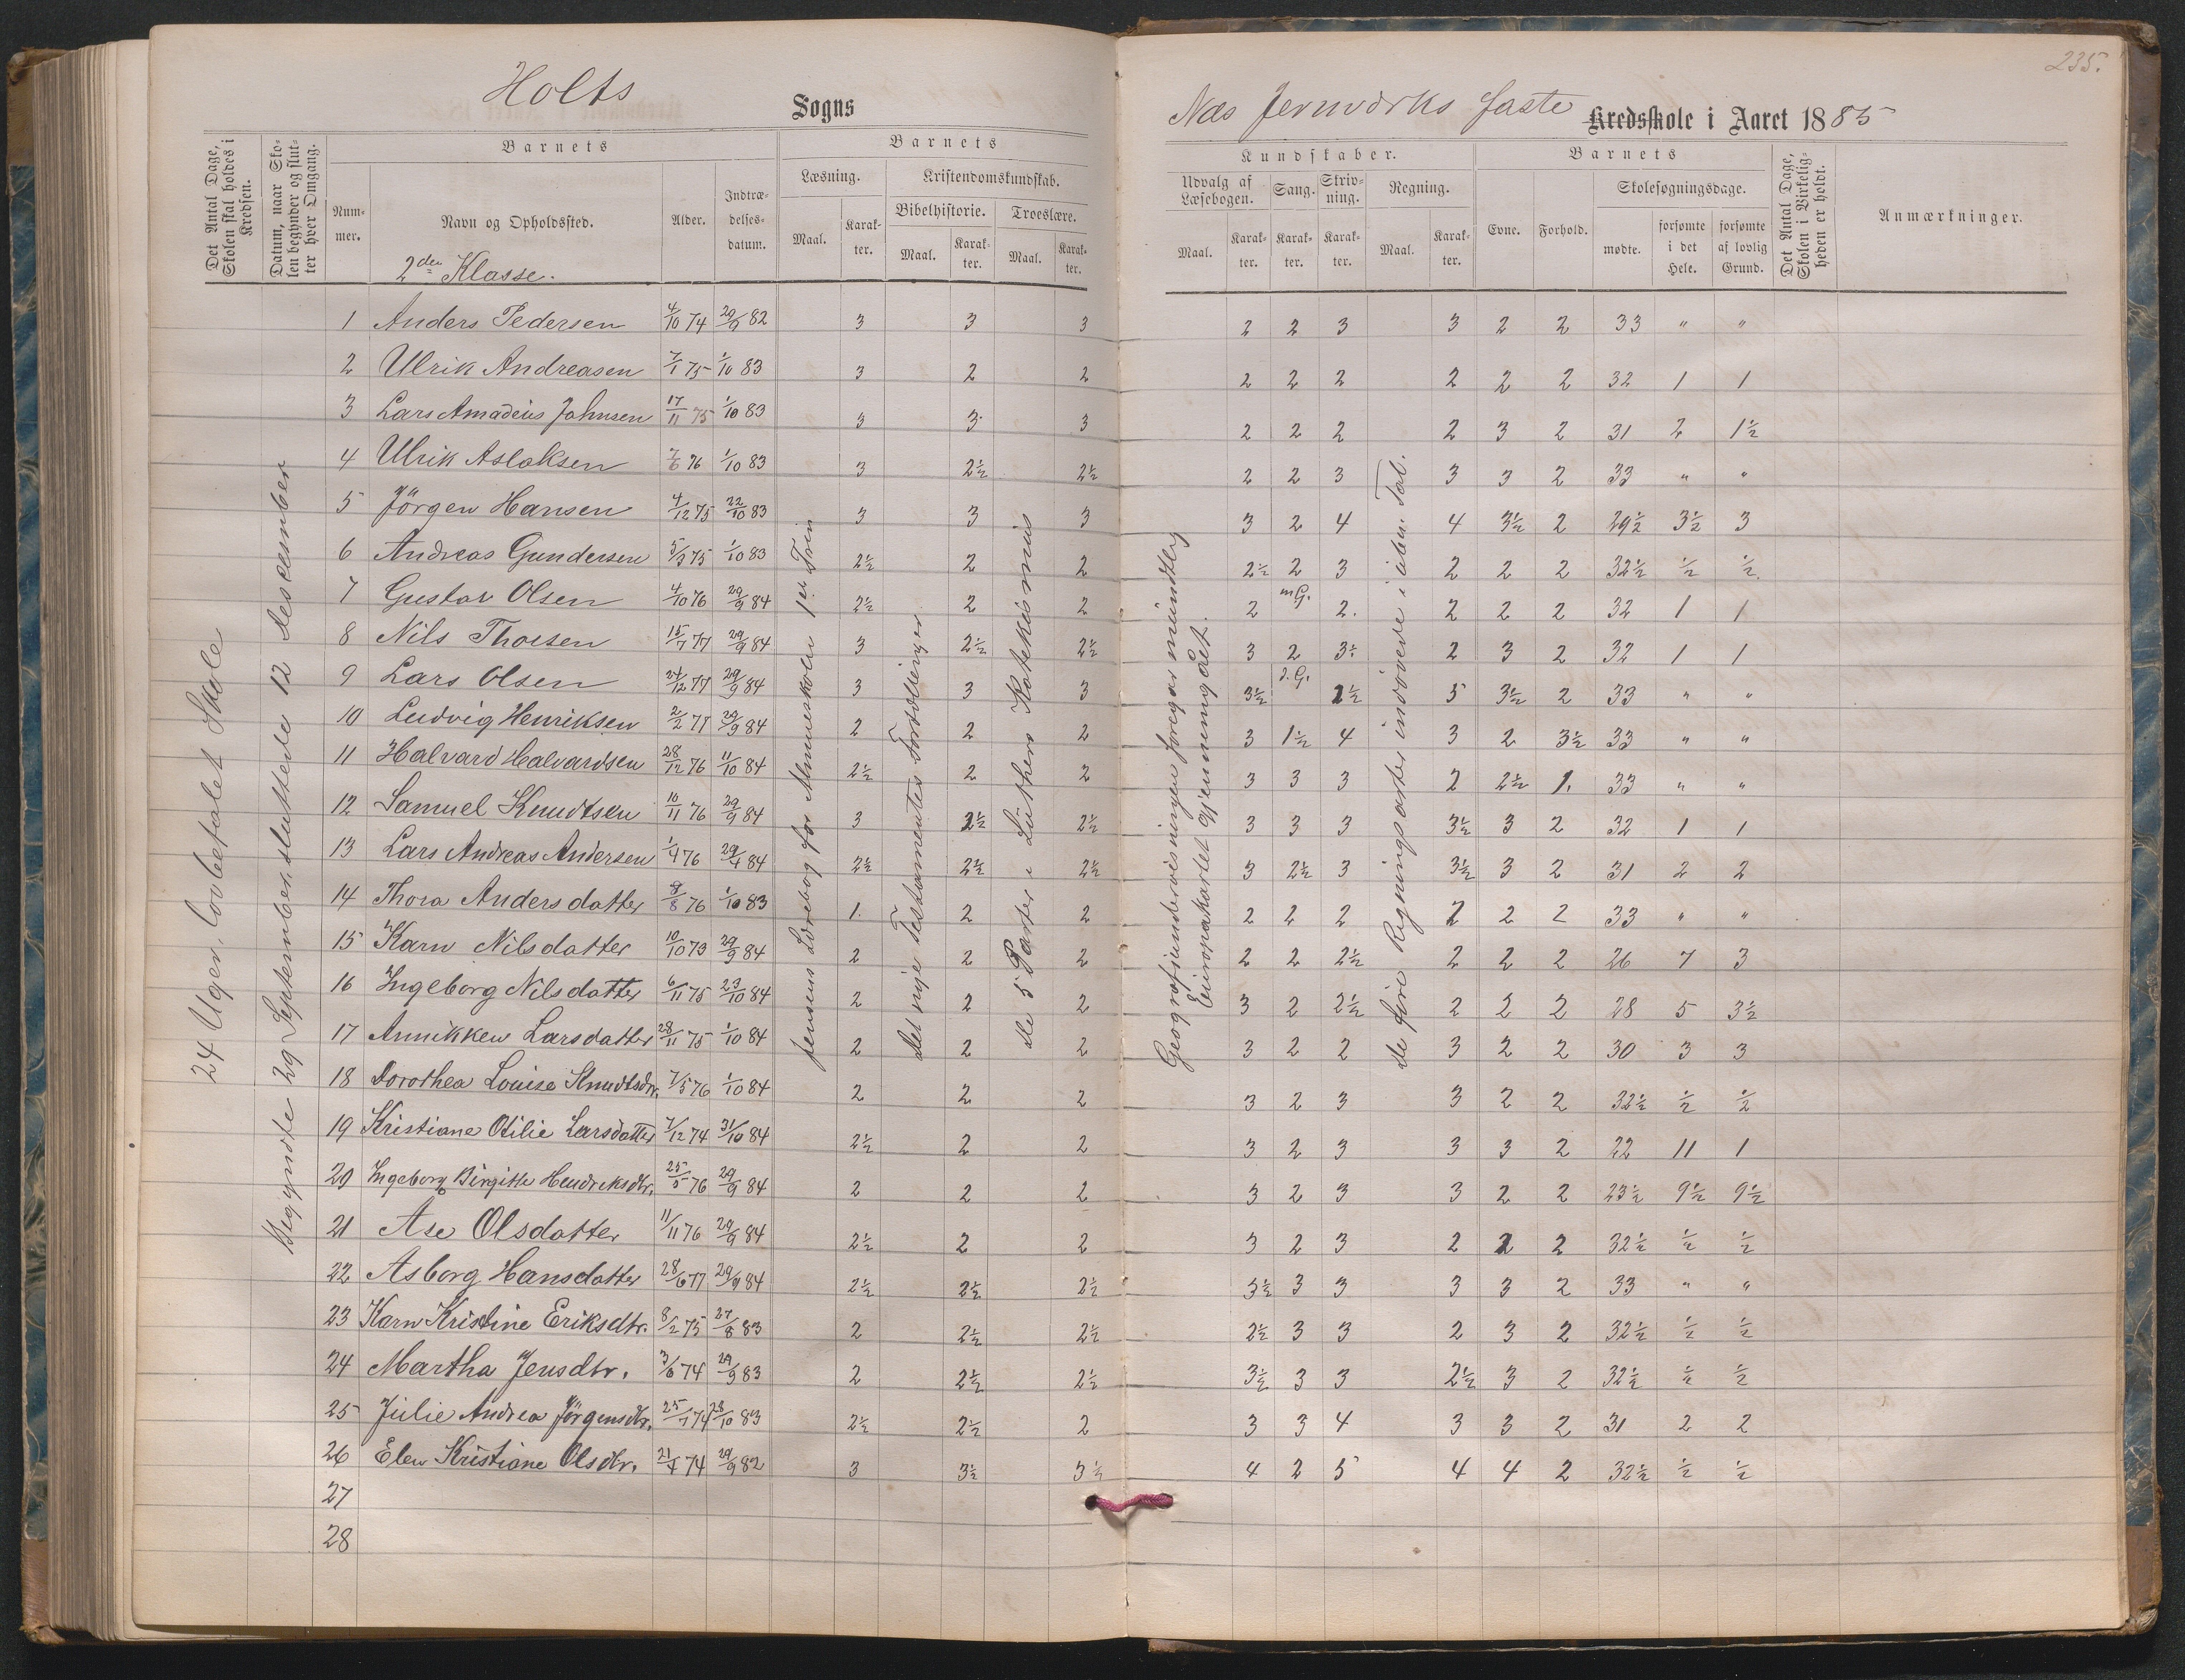 Holts Sogns
Næs Jernværks faste Kredsskole i Aaret 1885
235.
Det Antal Dage, Skolen skal holdes i Kredsen.
Datum, naar Skolen begynder og slutter hver Omgang.
Barnets
Nummer.
Navn og Opholdssted.
Alder.
Indtrædelsesdatum.
Barnets
Læsning.
Maal.
Karakter.
Kristendomskundskab.
Bibelhistorie.
Maal.
Karakter.
Troeslære.
Maal.
Karakter.
Kundskaber.
Udvalg af Læsebogen.
Maal.
Karakter.
Sang.
Karakter.
Skrivning.
Karakter.
Regning.
Maal.
Karakter.
Barnets
Evne.
Forhold.
Skolesøgningsdage.
mødte.
forsømte i det Hele.
forsømte af lovlig Grund.
Det Antal Dage, Skolen i Virkeligheden er holdt.
Anmærkninger.
2den Klasse.
24 Uger, lovbefalet Skole
Begyndte 29 September, sluttede 12 desember
Jensens Læsebog for Almueskolen 1ste Trin
Det nye Testamentes Fortællinger
De 5 Parter i Luthers Katekismus
Geografiundervisningen foregår mundtlig
Europakartet gjennemgået.
De fire Regningsarter indøvede i uben. Tal.
1 Anders Pedersen 4/10 74 29/9 82 3 3 3 2 2 3 3 2 2 33 " "
2 Ulrik Andreasen 7/1 75 1/10 83 3 2 2 2 2 2 2 2 2 32 1 1
3 Lars Amadeus Johnsen 17/11 75 1/10 83 3 3 3 2 2 2 2 3 2 31 2 1½
4 Ulrik Aslaksen 7/6 76 1/10 83 3 2½ 2½ 2 2 3 3 3 2 33 " "
5 Jörgen Hansen 4/12 75 22/10 83 3 3 3 3 2 4 4 3½ 2 29½ 3½ 3
6 Andreas Gundersen 5/9 75 1/10 83 2½ 2 2 2½ 2 3 2 2 2 32½ ½ ½
7 Gustav Olsen 4/10 76 29/9 84 2½ 2 2 2 mG. 2. 2 2 2 32 1 1
8 Nils Thorsen 15/7 77 29/9 84 3 2½ 2½ 3 2 3 2 3 2 32 1 1
9 Lars Olsen 24/12 77 29/9 84 3 3 3 3½ d.G. 2½ 5 3½ 2 33 " "
10 Ludvig Henriksen 2/2 77 29/9 84 2 2 2 3 1½ 4 3 2 3½ 33 " "
11 Halvard Halvardsen 28/12 76 11/10 84 2½ 2 2 3 3 3 2 2½ 1. 33 " "
12 Samuel Knudtsen 10/11 76 29/9 84 3 2½ 2½ 3 3 3 3½ 3 2 32 1 1
13 Lars Andreas Andersen 1/4 76 29/4 84 2½ 2½ 2½ 3 2½ 3 3½ 3 2 31 2 2
14 Thora Andersdatter 8/8 76 1/10 83 1. 2 2 2 2 2 2 2 2 33 " "
15 Karn Nilsdatter 10/10 73 29/9 84 2 2 2 2 2 2½ 2 2 2 26 7 3
16 Ingeborg Nilsdatter 6/11 75 23/10 84 2 2 2 3 2 2½ 2 2 2 28 5 3½
17 Annikken Larsdatter 28/11 75 1/10 84 2 2 2 3 2 2 3 2 2 30 3 3
18 Dorothea Louise Knudtsdtr. 7/5 76 1/10 84 2 2 2 3 2 3 3 2 2 32½ ½ ½
19 Kristiane Otilie Larsdatter 7/12 74 31/10 84 2½ 2 2 3 2 3 3 3 2 22 11 1
20 Ingeborg Birgitte Hendreksdtr. 25/5 76 29/9 84 2 2 2 3 2 3 3 2 2 23½ 9½ 9½
21 Ase Olsdatter 11/11 76 29/9 84 2½ 2 2 3 2 3 2 2 2 32½ ½ ½
22 Asborg Hansdatter 28/6 77 29/9 84 2½ 2½ 2½ 3½ 3 3 3 3 2 33 " "
23 Karn Kristine Eriksdtr. 8/2 75 27/8 83 2 2½ 2½ 2½ 3 3 2 3 2 32½ ½ ½
24 Martha Jensdtr. 3/6 74 29/9 83 2 2½ 2½ 3½ 3 3 2½ 3 2 32½ ½ ½
25 Julie Andrea Jörgensdtr. 25/1 74 28/10 83 2½ 2½ 2 3 3 4 3 3 2 31 2 2
26 Elen Kristiane Olsdtr. 21/4 74 29/9 82 3 3½ 3½ 4 2 5 4 4 2 32½ ½ ½
27
28